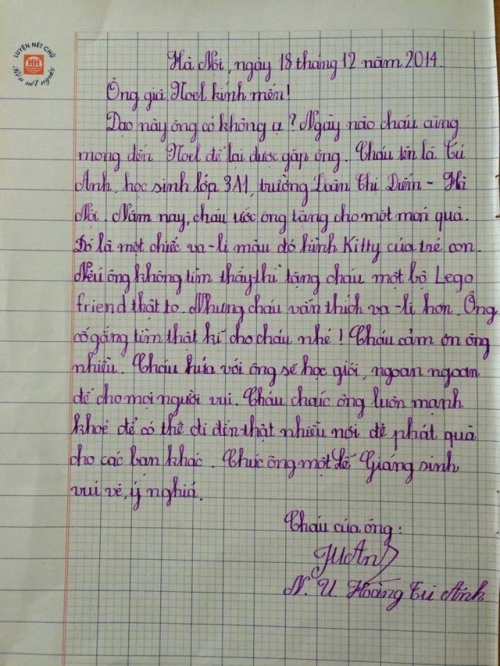 LUYỆN NÉT CHỮ
HH
Rèn nết người
Hà Nội, ngày 18 tháng 12 năm 2014.
Ông già Noel kính mến!
Dạo này ông có khỏe không ạ? Ngày nào cháu cũng
mong đến Noel để lại được gặp ông. Cháu tên là Tú
Anh, học sinh lớp 3A1, trường Đoàn Thị Điểm - Hà
Nội. Năm nay, cháu ước ông tặng cho một món quà.
Đó là một chiếc va-li màu đỏ hình Kitty của trẻ con.
Nếu ông không tìm thấy thì tặng cháu một bộ Lego
friend thật to. Nhưng cháu vẫn thích va-li hơn. Ông
cố gắng tìm thật kĩ cho cháu nhé! Cháu cảm ơn ông
nhiều. Cháu hứa với ông sẽ học giỏi, ngoan ngoan
để cho mọi người vui. Cháu chúc ông luôn mạnh
khoẻ để có thể đi đến thật nhiều nơi để phát quà
cho các bạn khác. Chúc ông một lễ Giáng sinh
vui vẻ, ý nghĩa.
Cháu của ông:
N. U. Hoàng Tú Anh